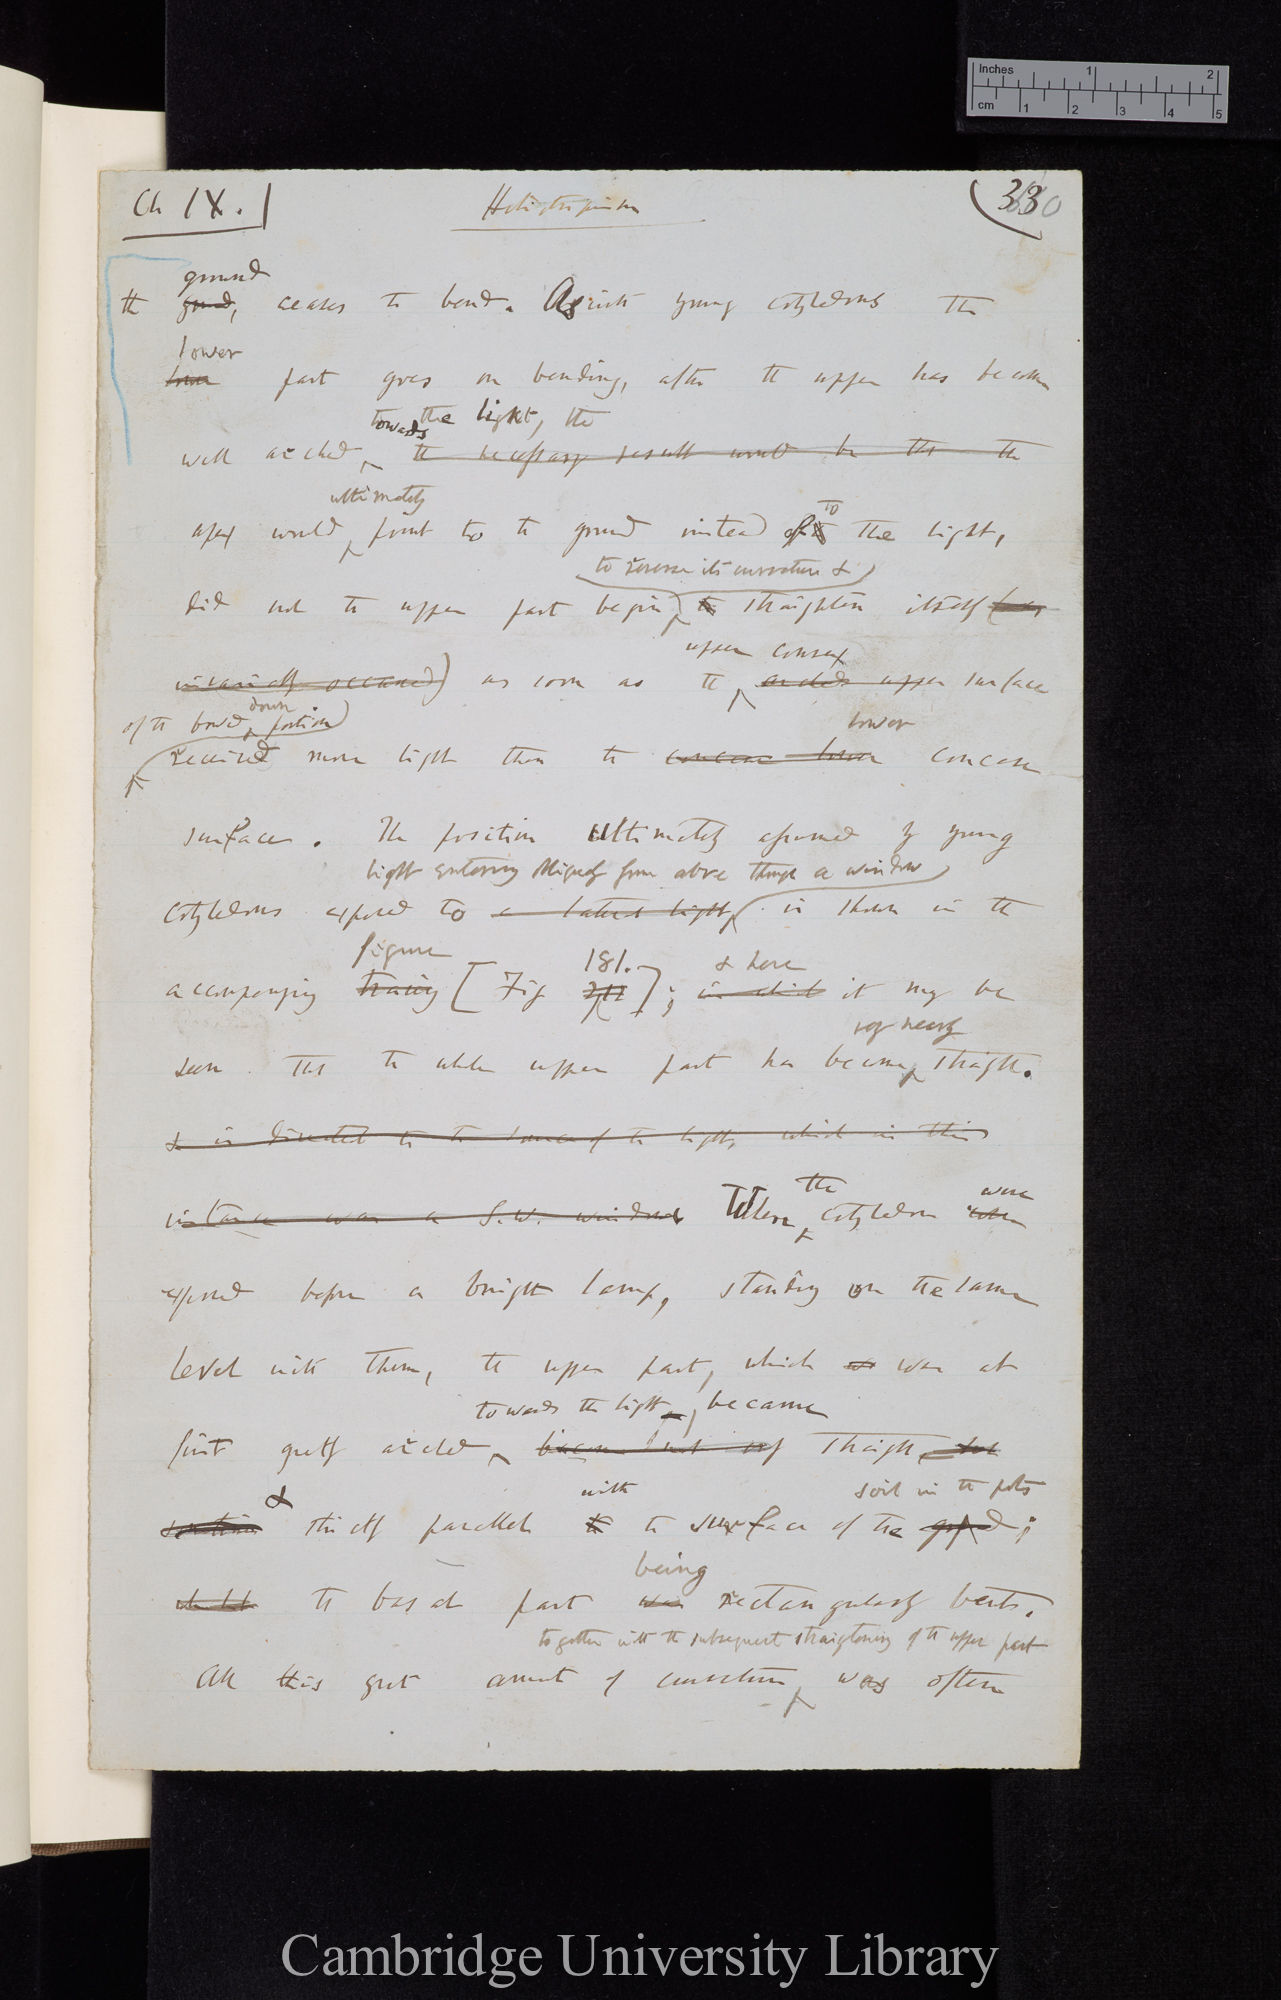 Inches 1 2
cm 1 2 3 4 5
Ch IX.
Heliotropism
330
ground
the ground, ceases to bend. As with young cotyledons the
lower
lower part goes on bending, after the upper has become
towards the light, the
well arched the necessary result would be that the
ultimately
to
apex would point to the ground instead of to the light,
to reverse its curvature &
did not the upper part begin to straighten itself (as
upper convex
invariably occurred) as soon as the arched upper surface
of the bowed down portion
lower
received more light than the concave lower concave
surface. The position ultimately assumed by young
light entering obliquely from above through a window
cotyledons exposed to a lateral light is shown in the
figure 181. & here
accompanying tracing [Fig ]; in which it may be
very nearly
seen that the whole upper part has become straight.
& is directed to the source of the light, which in this
the were
instance was a S.W. window When cotyledons when
exposed before a bright lamp, standing on the same
level with them, the upper part, which was at
towards the light, became
first greatly arched, became not only straight, but
& with soil in the pots
sometimes strictly parallel to the surface of the ground;
being
whilst the basal part was rectangularly bent.
together with the subsequent straightening of the upper part
All this great amount of curvature, was often
Cambridge University Library